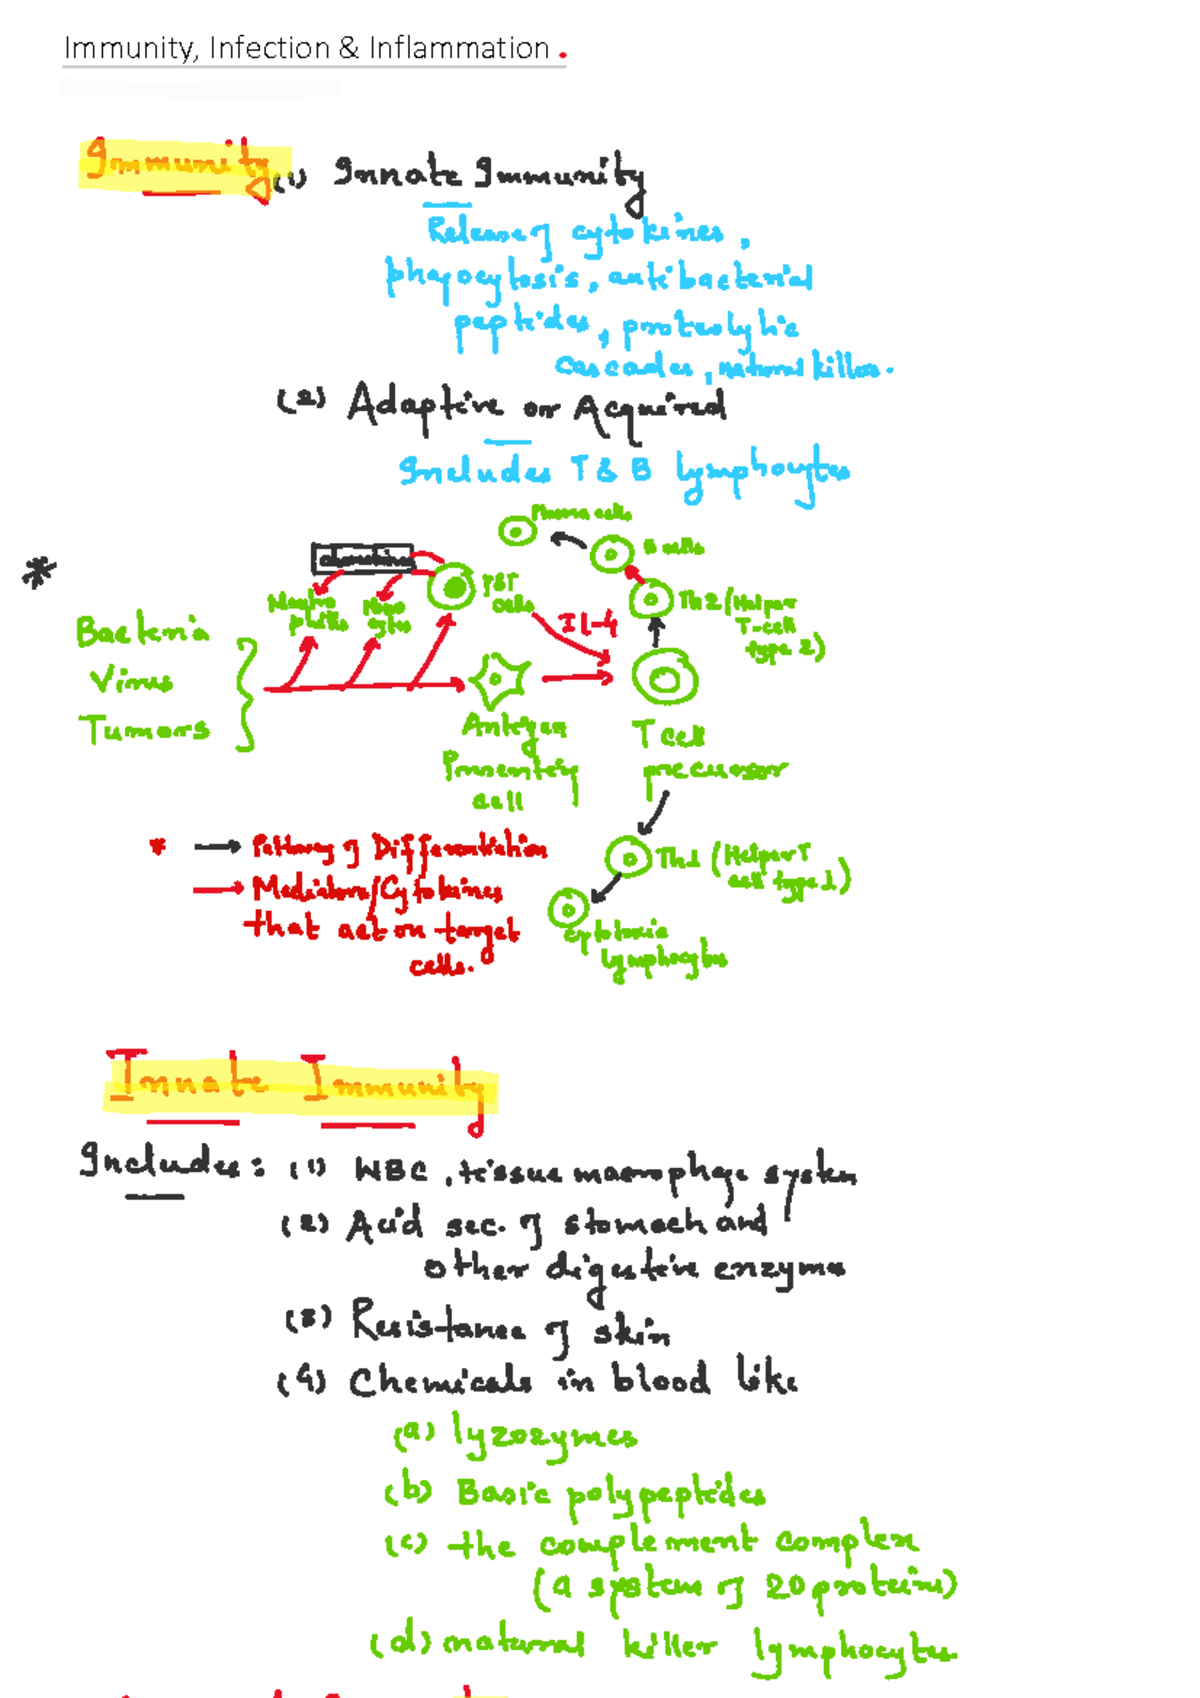 Immunity, Infection & Inflammation.
Immunity (1) Innate Immunity
Release of cytokines,
phagocytosis, antibacterial
peptides, proteolytic
cascades, natural killer.
(2) Adaptive or Acquired
Includes T & B lymphocytes
Plasma cells
B cells
cells
*
IL-4
Th2 (Helper
T-cell
type 2)
Bacteria
Virus
Tumors
Antigen
Presenting
cell
T cell
precursor
* → Pathway of Differentiation
→ Mediators/Cytokines
that act on target
cells.
Th1 (Helper T
cell type 1)
lymphocytes
Innate Immunity
Includes: (1) WBC, tissue macrophage system
(2) Acid sec. of stomach and
other digestive enzyme
(3) Resistance of skin
(4) Chemicals in blood like
(a) lyzozymes
(b) Basic polypeptides
(c) the complement complex
(a system of 20 proteins)
(d) natural killer lymphocytes